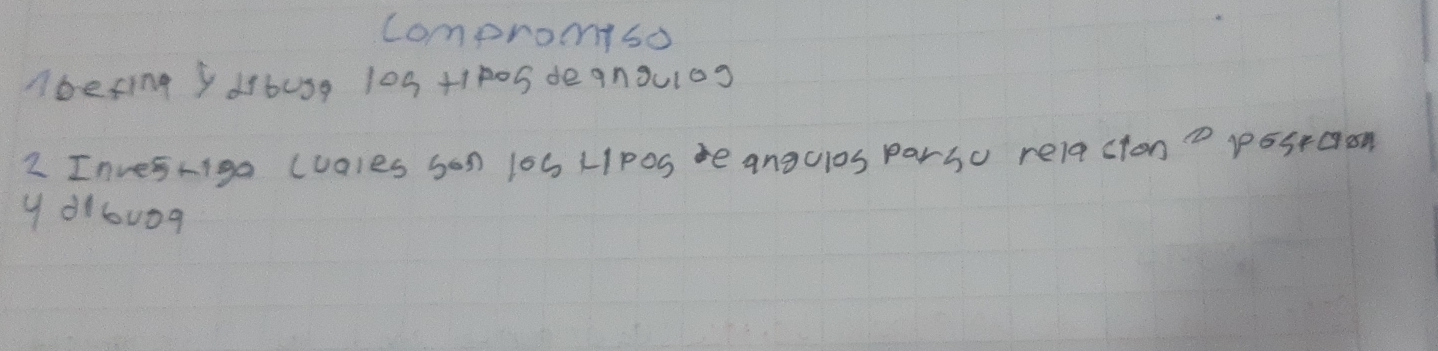 Compromiso
1 Defina y dibuja los tipos de angulos
2 Investigo Cuales son los tipos de angulos por su relacion o posicion
y dibuja